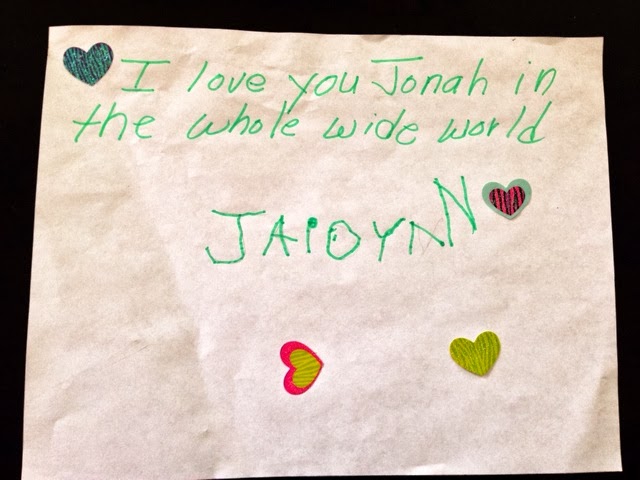 I love you Jonah in
the whole wide world
JAIDYNN